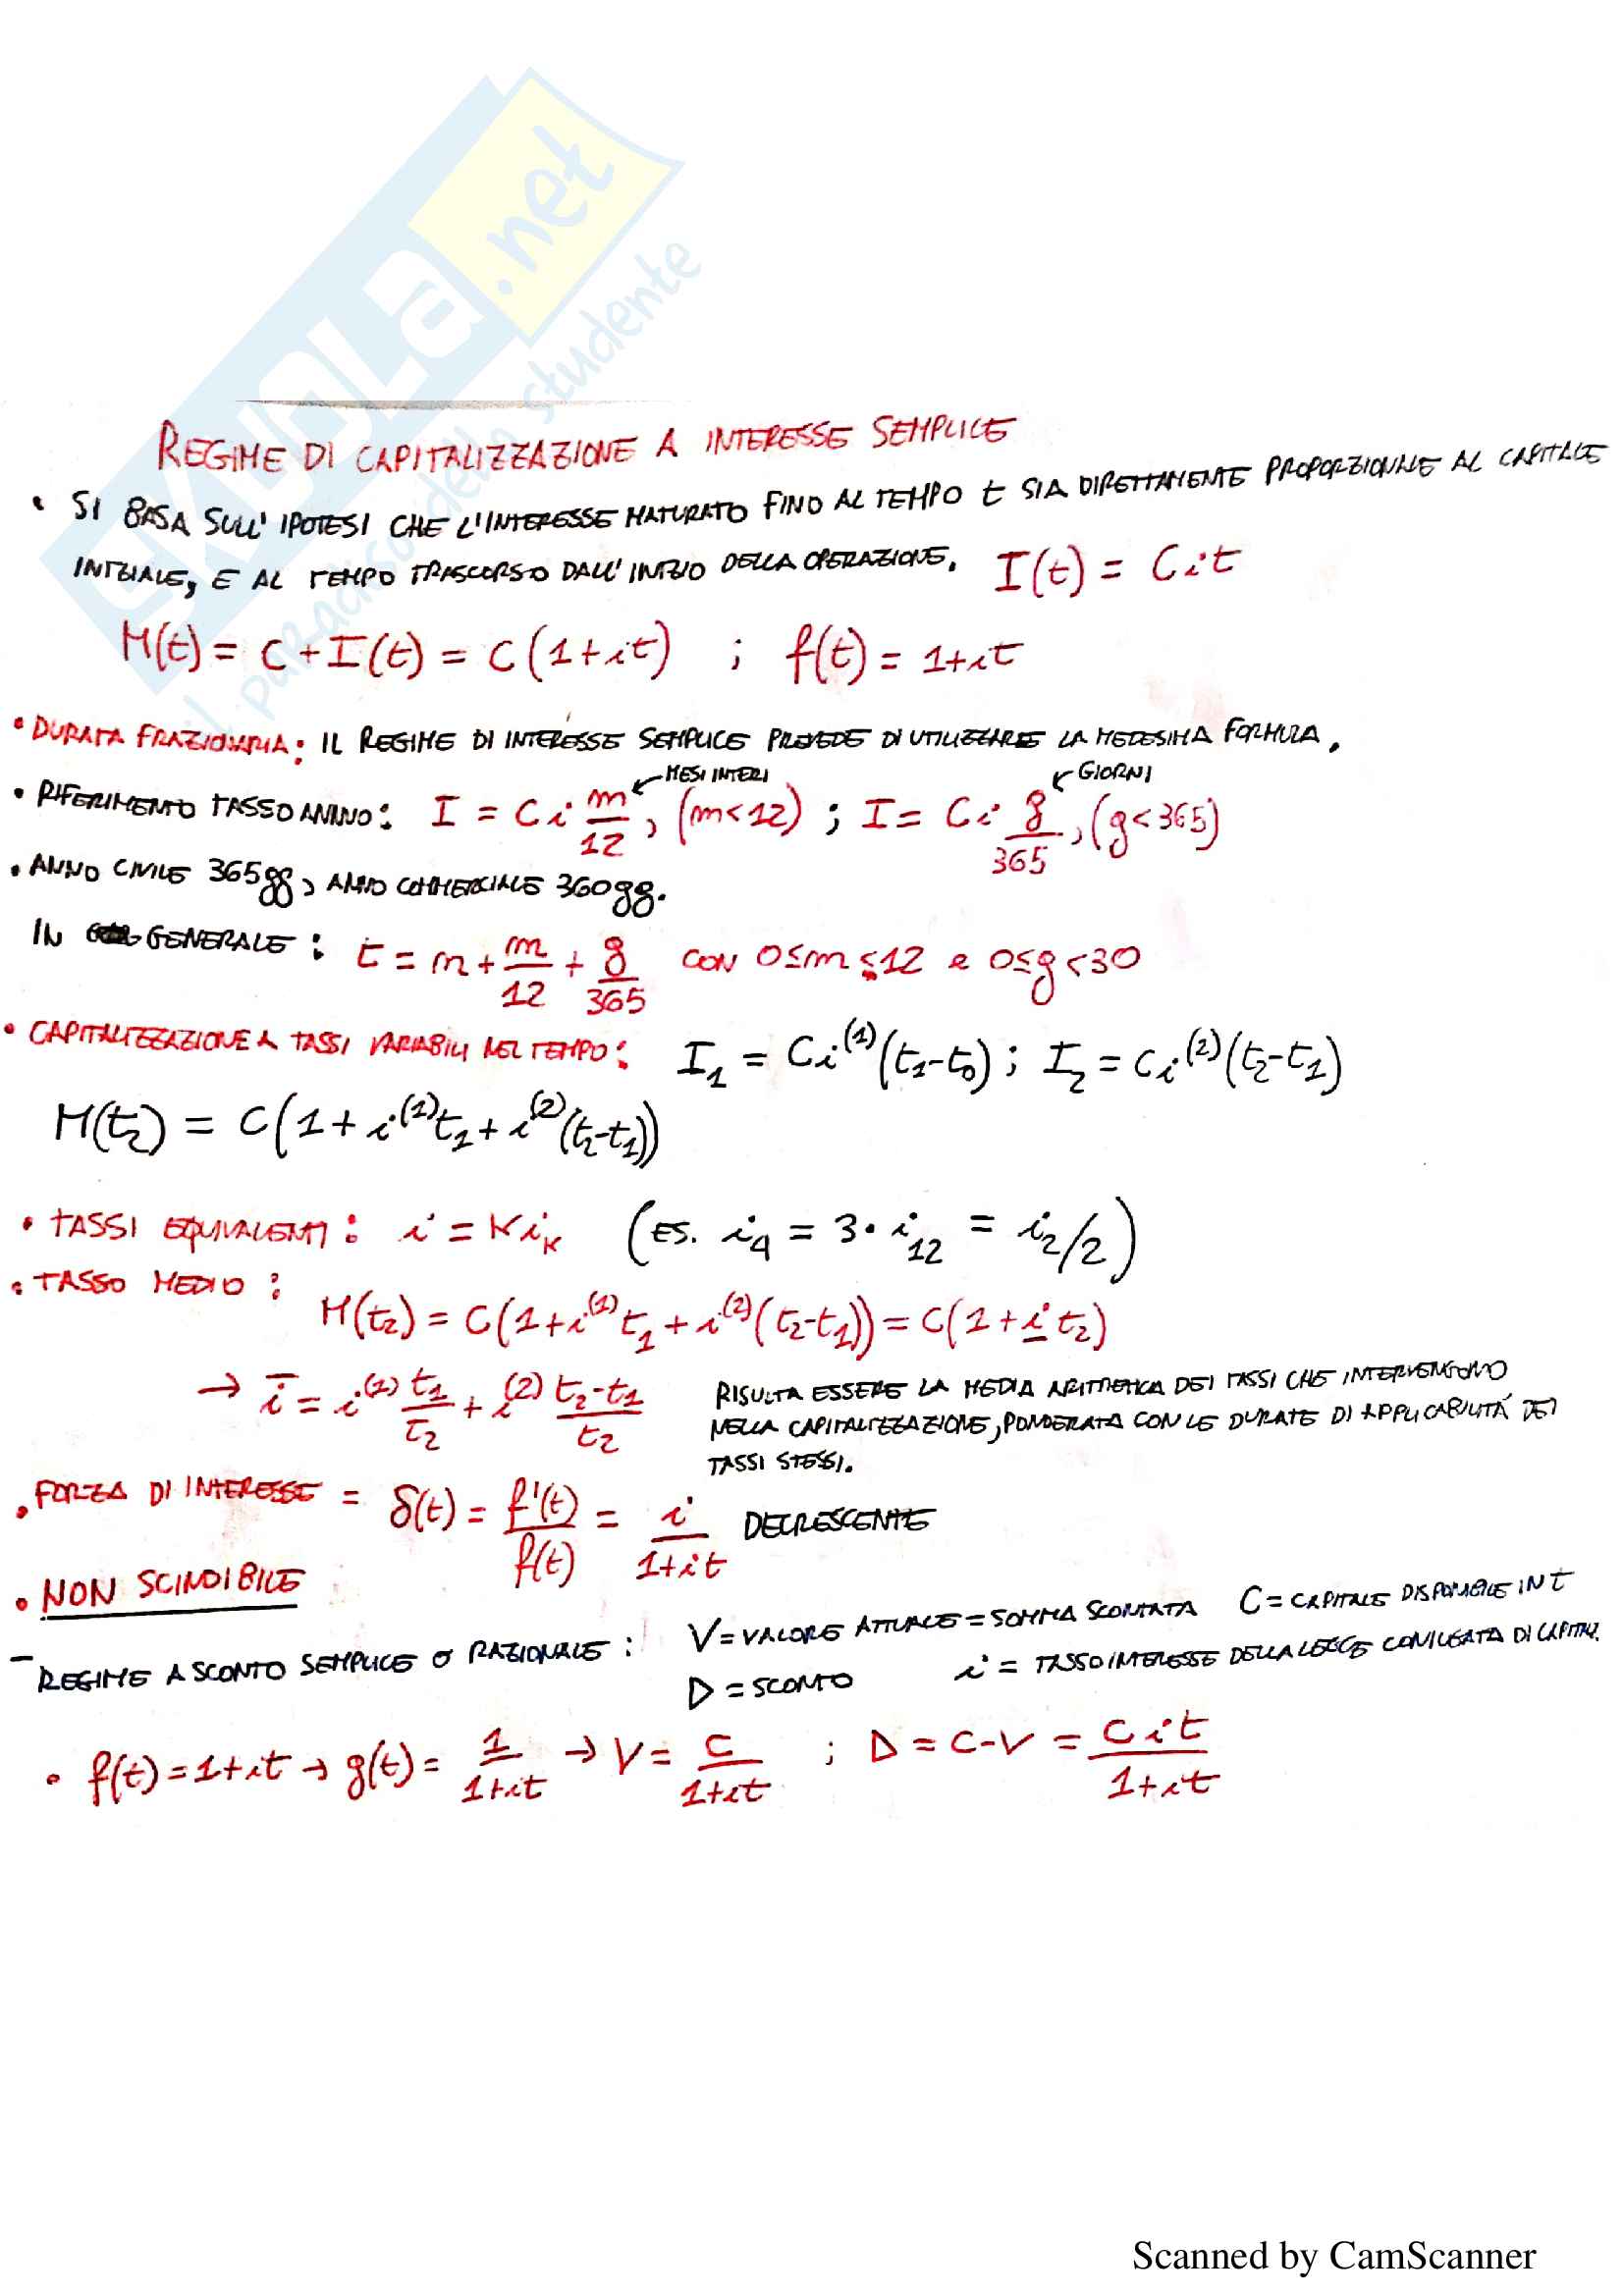 SKUOLA.net
il paradiso dello studente
REGIME DI CAPITALIZZAZIONE A INTERESSE SEMPLICE
• SI BASA SULL'IPOTESI CHE L'INTERESSE MATURATO FINO AL TEMPO t SIA DIRETTAMENTE PROPORZIONALE AL CAPITALE
INIZIALE, E AL TEMPO TRASCORSO DALL'INIZIO DELLA OPERAZIONE. I(t) = Cit
M(t) = C + I(t) = C(1+it) ; f(t) = 1+it
• DURATA FRAZIONARIA: IL REGIME DI INTERESSE SEMPLICE PREVEDE DI UTILIZZARE LA MEDESIMA FORMULA.
← MESI INTERI ← GIORNI
• RIFERIMENTO TASSO ANNUO: I = Ci m/12, (m<12) ; I = Ci g/365, (g<365)
• ANNO CIVILE 365gg, ANNO COMMERCIALE 360gg.
IN GENERALE: t = n + m/12 + g/365 CON 0≤m≤12 e 0≤g<30
• CAPITALIZZAZIONE A TASSI VARIABILI NEL TEMPO: I₁ = Ci⁽¹⁾(t₁-t₀) ; I₂ = Ci⁽²⁾(t₂-t₁)
M(t₂) = C(1+i⁽¹⁾t₁+i⁽²⁾(t₂-t₁))
• TASSI EQUIVALENTI: i = Kiₖ (ES. i₄ = 3·i₁₂ = i₂/2)
• TASSO MEDIO:
M(t₂) = C(1+i⁽¹⁾t₁+i⁽²⁾(t₂-t₁)) = C(1+i̲t₂)
→ i̅ = i⁽¹⁾ t₁/t₂ + i⁽²⁾ (t₂-t₁)/t₂ RISULTA ESSERE LA MEDIA ARITMETICA DEI TASSI CHE INTERVENGONO
NELLA CAPITALIZZAZIONE, PONDERATA CON LE DURATE DI APPLICABILITÁ DEI
TASSI STESSI.
• FORZA DI INTERESSE = δ(t) = f'(t)/f(t) = i/(1+it) DECRESCENTE
• NON SCINDIBILE
- REGIME A SCONTO SEMPLICE O RAZIONALE: V = VALORE ATTUALE = SOMMA SCONTATA C = CAPITALE DISPONIBILE IN t
D = SCONTO i = TASSO INTERESSE DELLA LEGGE CONIUGATA DI CAPITAL.
• f(t) = 1+it → g(t) = 1/(1+it) → V = C/(1+it) ; D = C-V = Cit/(1+it)
Scanned by CamScanner